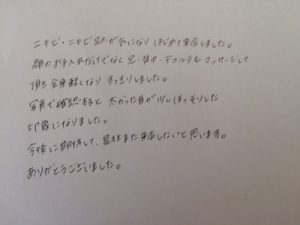 ニキビ・ニキビ跡が気になり はじめて来店しました。
顔のお手入れだけでなく 肩・背中・デコルテも マッサージして
頂き 全身軽くなり すっきりしました。
写真で確認すると 太かった首が少しほっそりした
印象になりました。
今後に期待して、是非また来店したいと思います。
ありがとうございました。